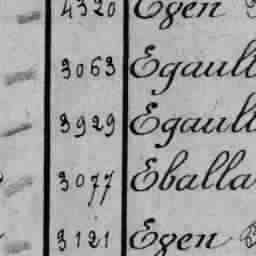 4320 Egen
3063 Egault
3929 Egault
3077 Eballa
3121 Egen